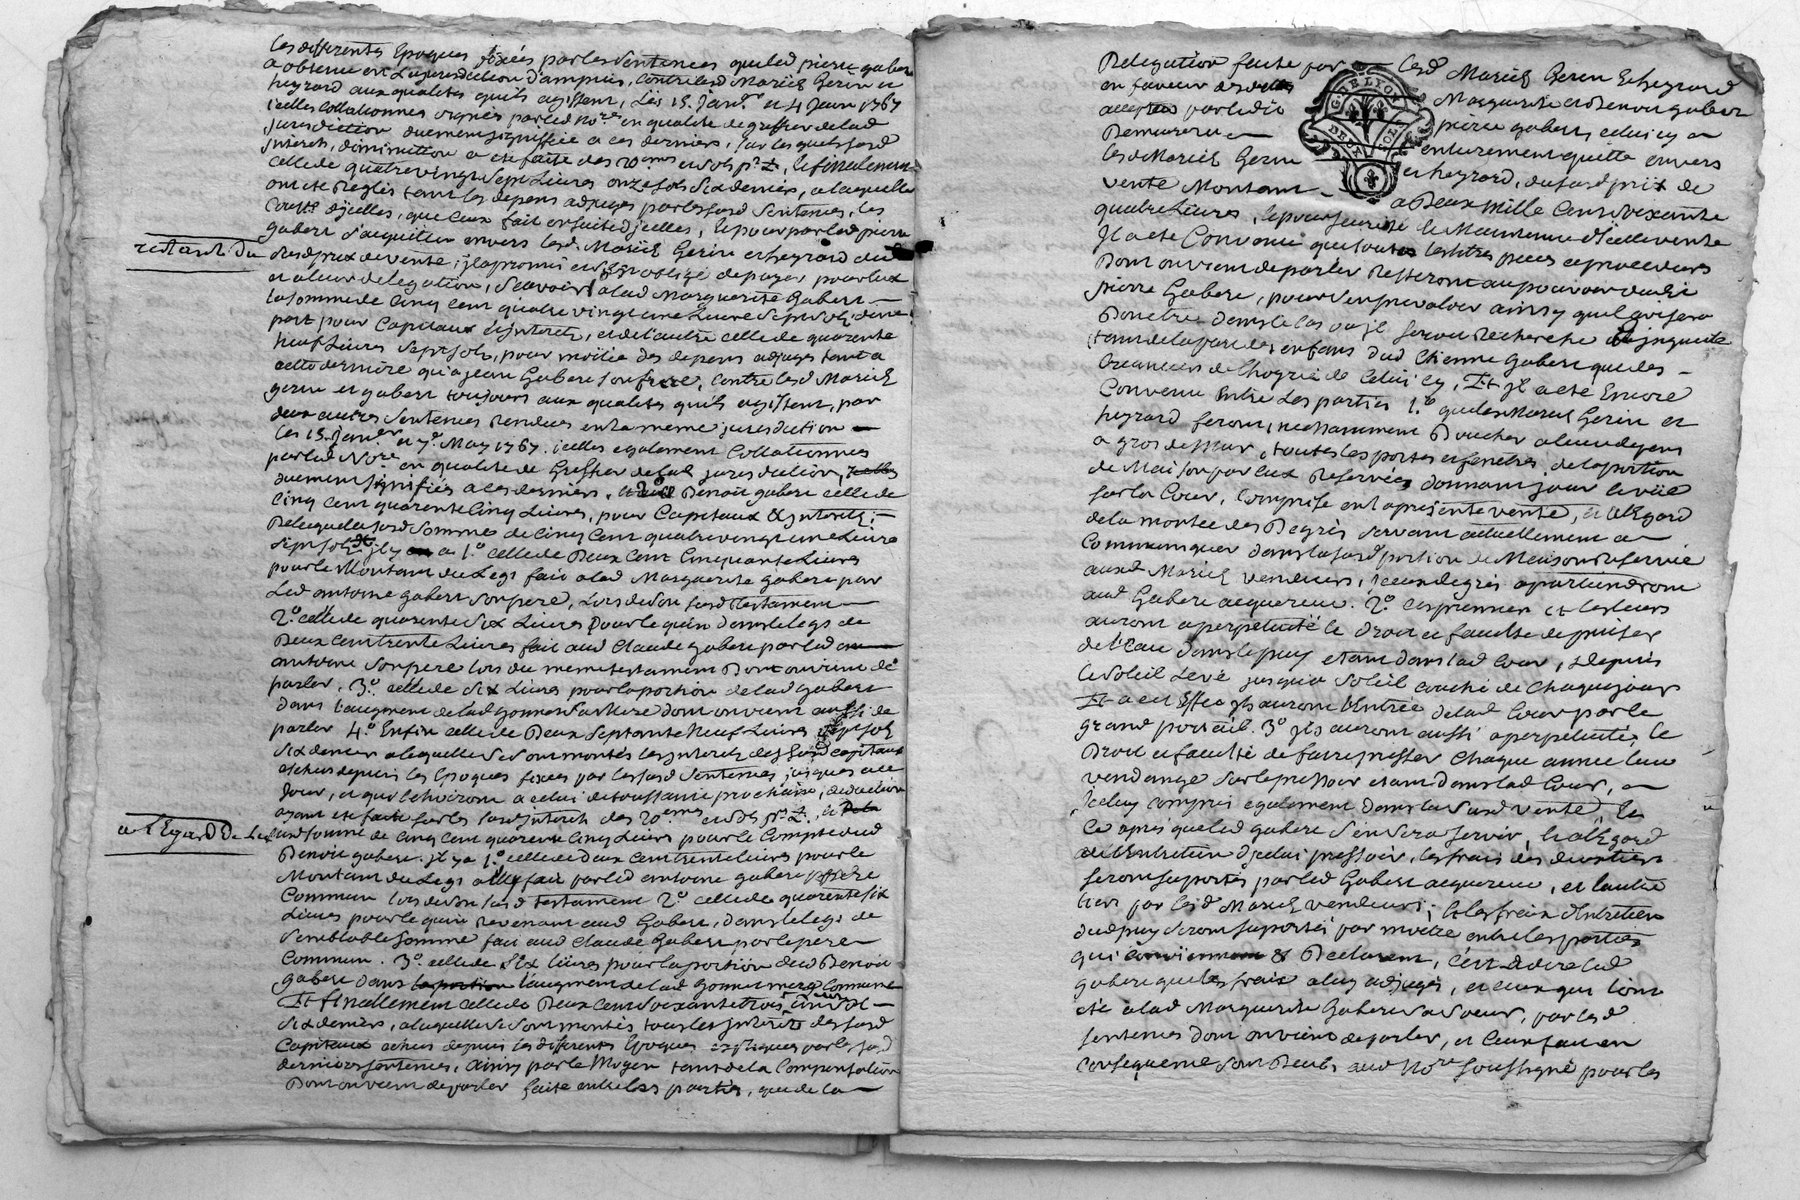 les differentes Epoques fixées par les sentences que led pierre gabert
a obtenu en la jurisdiction d'ampuis, contre lesd Mariés Gerin et
heyrard aux qualites quils agissent, les 15. Janv.er et 4 Juin 1767
icelles Collationnes signés par led No.re en qualité de greffier de lad
jurisdiction duement signiffiée a ces derniers, sur lesquels susd
interets, diminution a eté faite des 20.emes et sols pr £, et finalement
celle de quatre vingt sept Livres onze sols six deniers, a laquelle
ont eté Reglés tant les depens adjugés par les susd sentences, les
Couts d'jcelles, que ceux fait ensuite d'jcelles, et pour par led pierre
gabert s'acquitter envers lesd. Mariés Gerin et heyrard du
restant du
susd prix de vente, jl a promis et s'est obligé de payer pour eux
et a leur delegation, scavoir a lad Marguerite Gabert
la somme de Cinq Cent quatre vingt une Livre sept sols, d'une
part pour Capitaux et jnterets, et de l'autre celle de quarente
neuf Livres sept sols, pour moitié des depens adjuges tant a
cette derniére qu'a jean Gabert son frere, contre lesd Mariés
gerin et gabert toujours aux qualites quils agissent, par
deux autres sentences Rendues en la meme jurisdiction
les 15. Janv.er et 7.e May 1767. icelles egalement Collationnes
par led No.re en qualité de Greffier de lad jurisdiction,
duement signifiés a ces derniers, et aud Benoit gabert celle de
Cinq Cent quarente Cinq Livres, pour Capitaux et jnterets;
De laquelle susd somme de Cinq Cent quatre vingt une Livre
sept sols jl y a 1.o celle de Deux Cent Cinquante Livres
pour le Montant du Legs fait a lad Marguerite gabert par
Led antoine gabert son pere, Lors de son susd testament
2.o celle de quarente six Livres pour le quin dans le legs de
Deux Cent trente Livres fait aud Claude gabert par led
antoine son pere lors du meme testament Dont on vient de
parler. 3.o celle de six Livres pour la portion de lad Gabert
dans l'augment de lad gonnet sa Mere dont on vient aussi de
parler 4.o Enfin celle de Deux septante Neuf Livres sept sols
six deniers a laquelle se sont montés les jnterets des susd capitaux
echus depuis les Epoques fixées par les susd sentences jusques a ce
jour, et qui echoiront a celui de toussaint prochain, deduction
ayant eté faite sur les susd jnterets des 20.emes et sols pr £.
a l'Egard de La
susd somme de cinq cent quarente Cinq Livres pour le Compte dud
Benoit gabert. jl y a 1.o celle de Deux Cent trente livres pour le
Montant du Legs a luy fait par led antoine gabert pere
Commun lors de son susd testament 2.o celle de quarente six
Livres pour le quin Revenant aud Gabert, dans le legs de
semblable somme fait aud Claude Gabert par le pere
Commun. 3.o celle de six livres pour la portion dud Benoit
gabert dans l'augment de lad gonnet mere Commune
Et finallement celle de Deux Cent soixante trois Livres
six deniers, a laquelle se sont montés tous les jnterets des susd
Capitaux echus depuis les differentes Epoques par les susd
dernieres sentences, ainsy par le Moyen tant de la Compensation
Dont on vient de parler faite entre les parties, que de la
Delegation faite par lesd Mariés Gerin et heyrard
en faveur desd Marguerite et Benoit gabert
acceptée par led pierre gabert, celui cy a
Demeure entierement quitte envers
lesd Mariés Gerin et heyrard, du susd prix de
vente Montant a Deux Mille Cent soixante
quatre Livres, et pour seureté et Maintenue d'icelle vente
Jl a eté Convenu que toutes les titres pieces et procedures
Dont on vient de parler Resteront au pouvoir dudit
pierre Gabert, pour s'en prevaloir ainsy quil avisera
Bon etre dans le cas ou jl seroit Recherché et jnquieté
tant de la part des enfans dud Etienne Gabert que des
Creanciers de l'hoyrie de Celui cy, Et jl a eté Encore
Convenu Entre Les parties 1.o que lesd Mariés Gerin et
heyrard feront jncessamment Boucher a leurs depens
a gros de Mur, toutes les portes et fenetres de la portion
de Maison par eux Reservée, donnant jour et vüe
sur la Cour, Comprise en la presente vente, et a l'Egard
de la montée des Degrés servant actuellement a
Communiquer dans la susd portion de Maison Reservée
auxd Mariés vendeurs, iceux degrés apartiendront
aud Gabert acquereur. 2.o ces premiers et les leurs
auront a perpetuité le Droit et faculté de puiser
de l'Eau dans le puy etant dans lad Cour, depuis
le soleil Levé jusqu'a soleil couché de Chaque jour
Et a cet Effet jls auront l'Entrée de lad Cour par le
grand portail. 3.o jls auront aussi a perpetuité, le
Droit et faculté de faire presser Chaque année leur
vendange sur le pressoir etant dans lad Cour, et
Jceluy compris egalement dans la susd vente, Et
Ce aprés que led gabert s'en sera servir, et a l'Egard
de l'Entretien d'jcelui pressoir, les frais des deux tiers
seront suportés par led Gabert acquereur, et l'autre
tiers par lesd Mariés vendeurs; et les fraix d'Entretien
dud puy seront suportés par moitié entre les parties
qui Conviennent & Declarent, C'est a dire led
gabert que les fraix a luy adjugés, et ceux qui l'ont
eté a lad Marguerite Gabert sa soeur, par lesd
sentences dont on vient de parler, et Ceux fait en
Consequence sont Deubs aud No.re soussigné pour les
G. DE LYON
DEUX SOLS